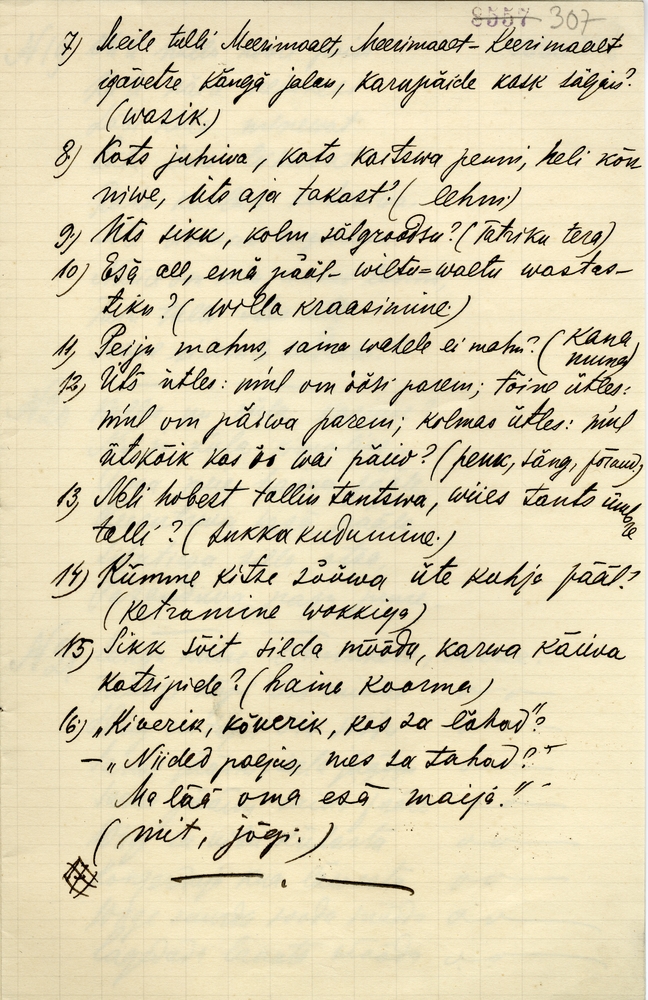 8557 307
7) Meile tulli Meerimaalt, Meerimaalt-Keerimaalt
igävetse kängä jalan, karupäide kask säljan?
(wasik.)
8) Kats juhiwa, kats kaitswa penni, neli kõn
niwe, üts aja takast? (lehm)
9) Üts sikk, kolm sälgroodsu? (Tatriku terg)
10) Esä all, emä pääl - wiltu-waltu wastas-
tiku? (willa kraasimine.)
11) Peiju mahus, saina wahele ei mahu? (kana
muna)
12) Üts ütles: mul om öösi parem; tõine ütles:
mul om päiwa parem; kolmas ütles: mul
ütskõik kas öö wai päiw? (penk, säng, põrand)
13) Neli hobest tallin tantswa, wiies tants ümbre
talli? (sukka kudumine.)
14) Kümme kitse sööwa üte kuhja pääl?
(ketramine wokkiga)
15) Sikk sõit silda möödu, karwa käüva
katsipide? (haina koorma)
16) „Kiverik, kõverik, kos sa lähad"?
— „Niided paejas, mes sa tahad?"
Ma lää oma esä maija."
(niit, jõgi.)